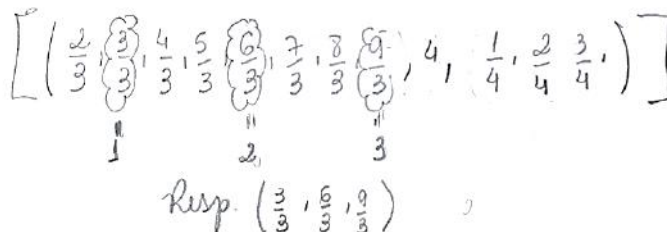 [(2/3, 3/3, 4/3, 5/3, 6/3, 7/3, 8/3, 9/3, 4, 1/4, 2/4 3/4,)]
" " "
1 2, 3
Resp. (3/3, 6/3, 9/3)